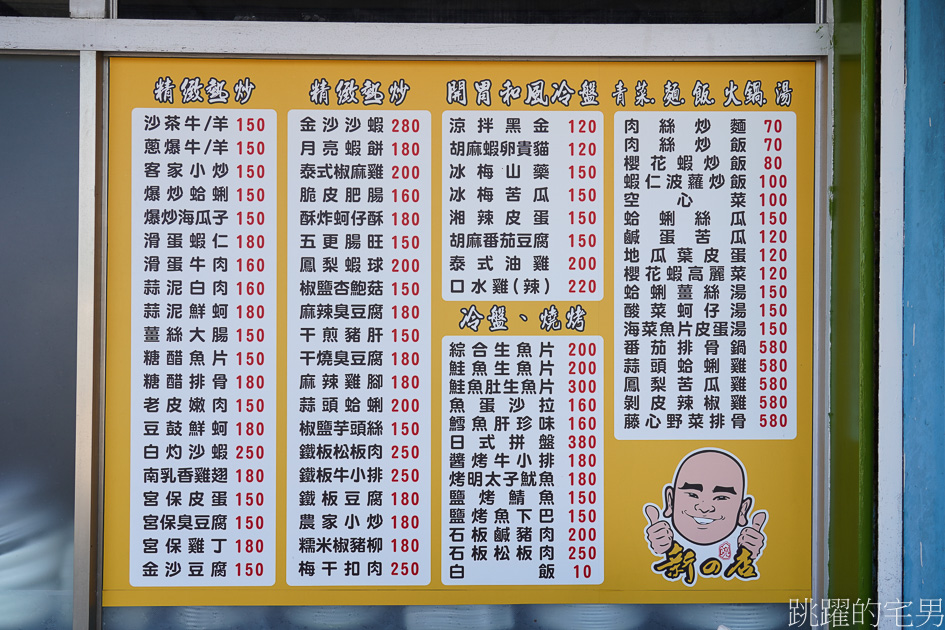 精緻熱炒
沙茶牛/羊 150
蔥爆牛/羊 150
客家小炒 150
爆炒蛤蜊 150
爆炒海瓜子 150
滑蛋蝦仁 180
滑蛋牛肉 160
蒜泥白肉 160
蒜泥鮮蚵 180
薑絲大腸 150
糖醋魚片 150
糖醋排骨 180
老皮嫩肉 150
豆鼓鮮蚵 180
白灼沙蝦 250
南乳香雞翅 180
宮保皮蛋 150
宮保臭豆腐 150
宮保雞丁 180
金沙豆腐 150
精緻熱炒
金沙沙蝦 280
月亮蝦餅 180
泰式椒麻雞 200
脆皮肥腸 160
酥炸蚵仔酥 180
五更腸旺 150
鳳梨蝦球 200
椒鹽杏鮑菇 150
麻辣臭豆腐 180
干煎豬肝 150
干燒臭豆腐 180
麻辣雞腳 180
蒜頭蛤蜊 200
椒鹽芋頭絲 150
鐵板松板肉 250
鐵板牛小排 250
鐵板豆腐 180
農家小炒 180
糯米椒豬柳 180
梅干扣肉 250
開胃和風冷盤
涼拌黑金 120
胡麻蝦卵貴貓 120
冰梅山藥 150
冰梅苦瓜 150
湘辣皮蛋 150
胡麻番茄豆腐 150
泰式油雞 200
口水雞(辣) 220
冷盤、燒烤
綜合生魚片 200
鮭魚生魚片 200
鮭魚肚生魚片 300
魚蛋沙拉 160
鱈魚肝珍味 160
日式拼盤 380
醬烤牛小排 180
烤明太子魷魚 180
鹽烤鯖魚 150
鹽烤魚下巴 150
石板鹹豬肉 200
石板松板肉 250
白飯 10
青菜.麵.飯.火鍋.湯
肉絲炒麵 70
肉絲炒飯 70
櫻花蝦炒飯 80
蝦仁波蘿炒飯 100
空心菜 100
蛤蜊絲瓜 150
鹹蛋苦瓜 120
地瓜葉皮蛋 120
櫻花蝦高麗菜 120
蛤蜊薑絲湯 150
酸菜蚵仔湯 150
海菜魚片皮蛋湯 150
番茄排骨鍋 580
蒜頭蛤蜊雞 580
鳳梨苦瓜雞 580
剝皮辣椒雞 580
藤心野菜排骨 580
新の店
跳躍的宅男